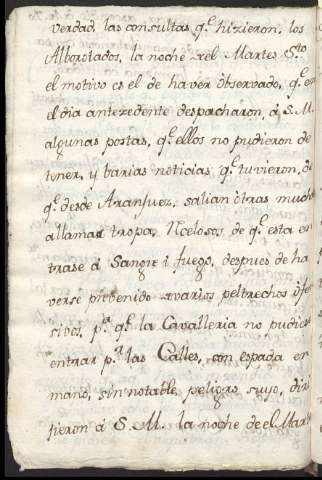 verdad las consultas q.e hizieron, los
Alborotados, la noche del Martes S.to
el motivo es el de haver observado, q.e en
el dia antezedente despacharon, á S. M.
algunas postas, q.e ellos no pudieron de
tener, y barias noticias, q.e tuvieron, de
q.e desde Aranjuez, salian otras much
allamar tropa, Rcelosos, de q.e esta en
trase á Sangre i fuego, despues de ha
verse prebenido varios peltrechos ofe
sivos, p.a q.e la Cavalleria no pudiese
entrar p.r las Calles, con espada en
mano, sin notable peligro suyo, diri
jieron á S. M. la noche de el Mart